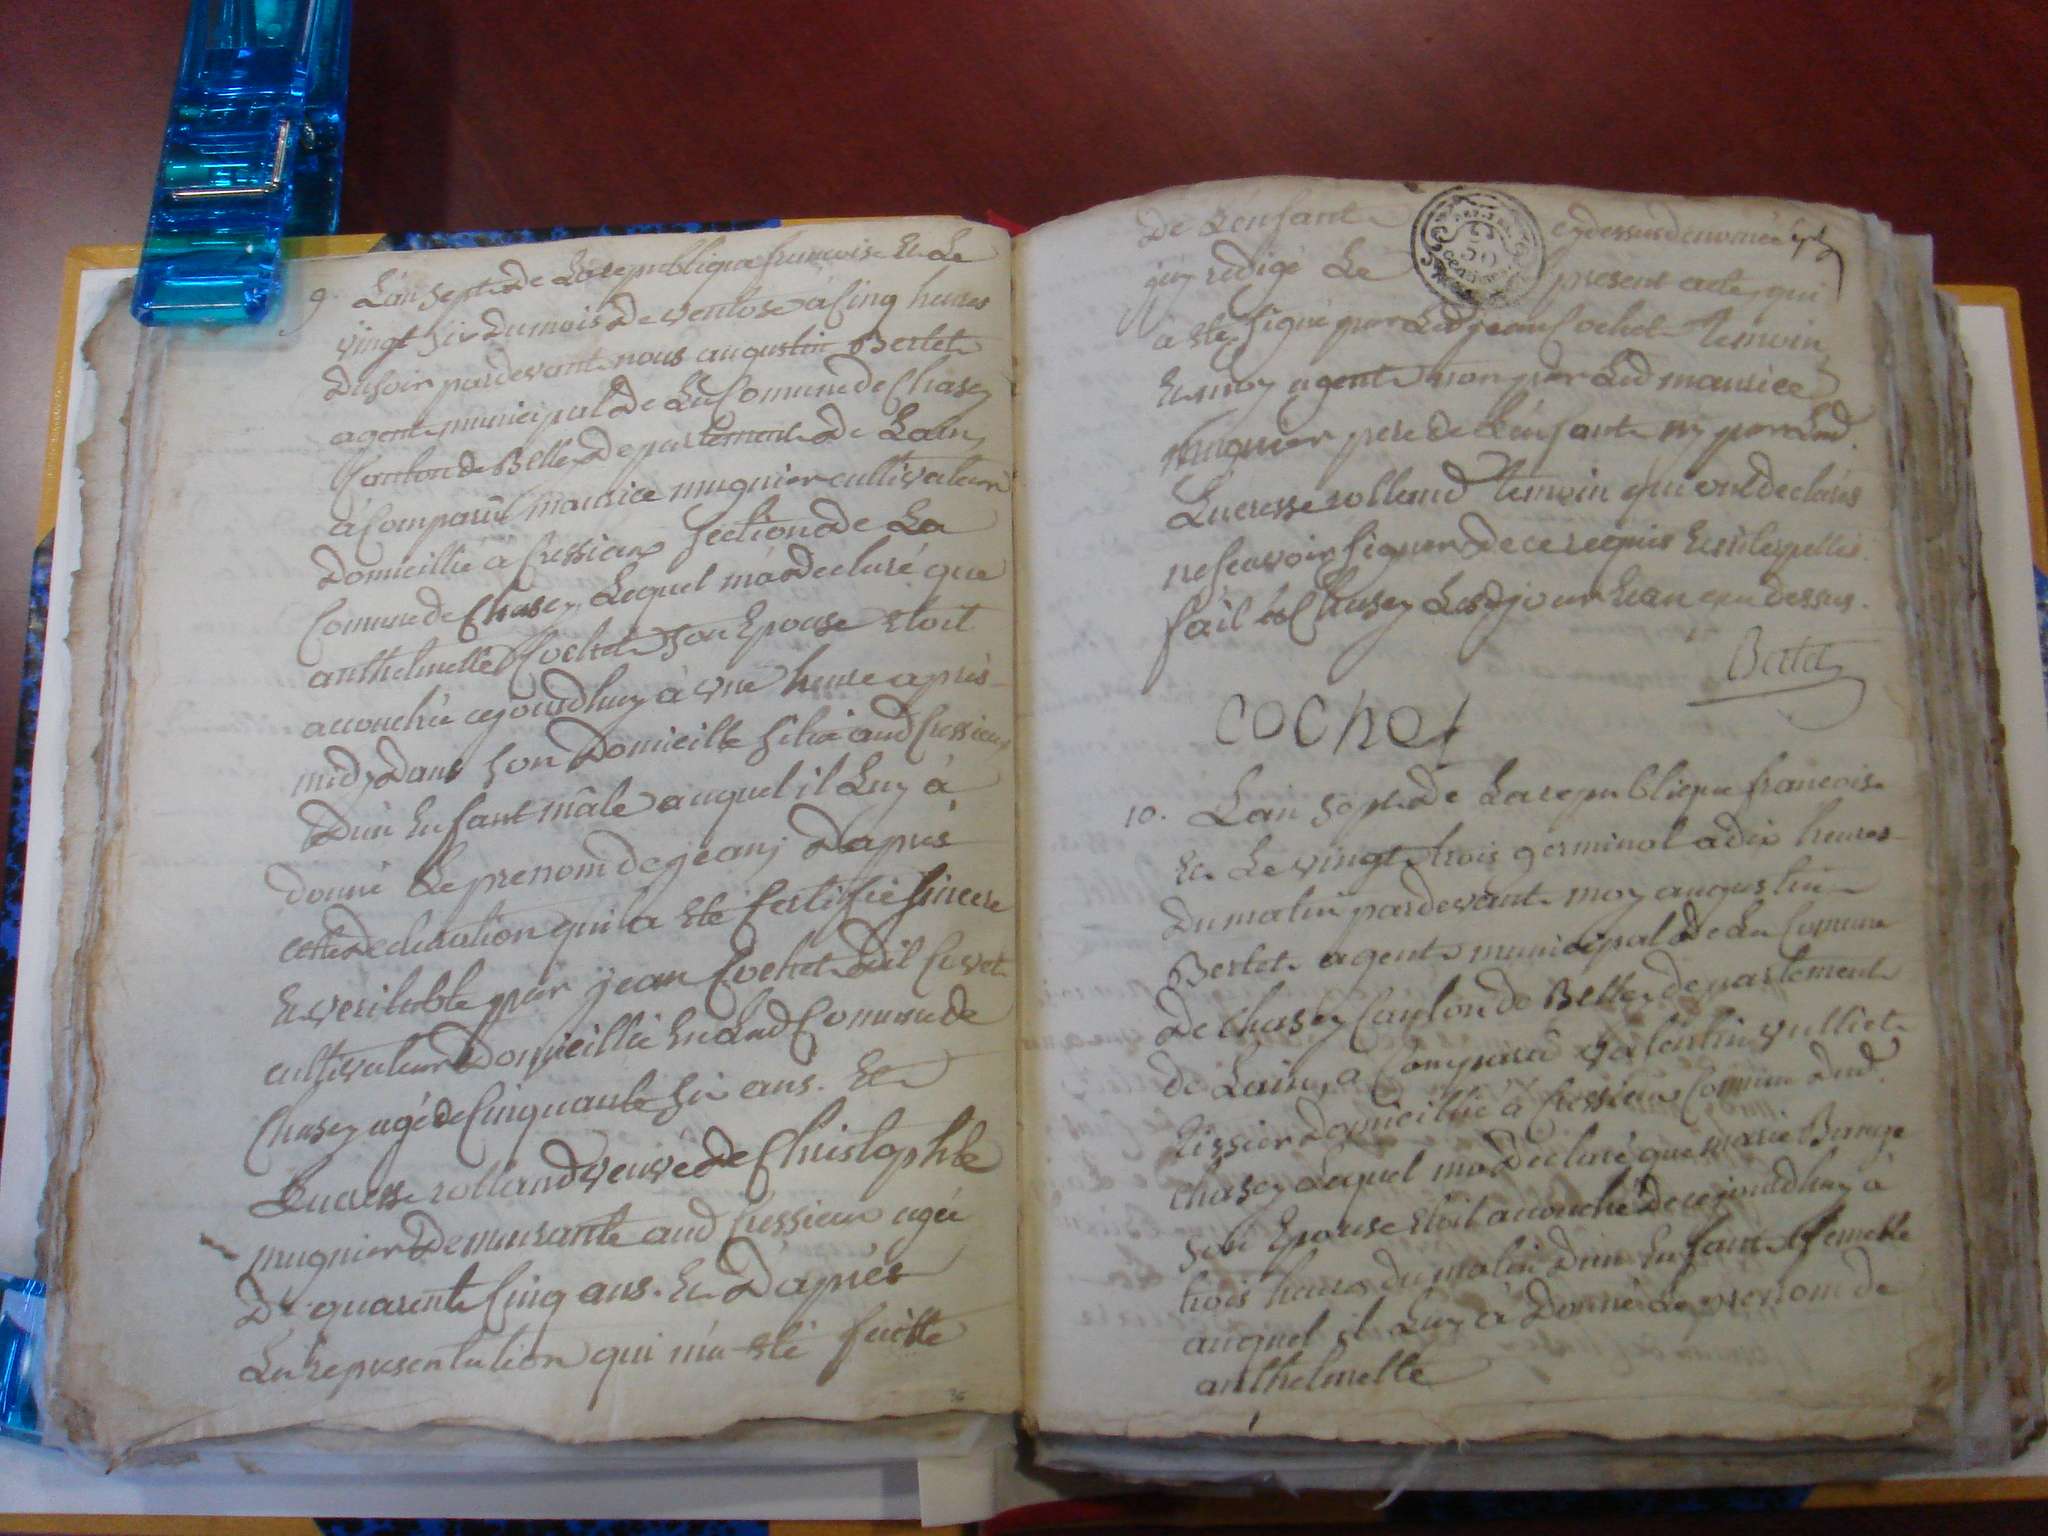 9. L'an sept de La republique francoise Et Le
vingt six du mois de ventose à Cinq heures
du soir pardevant nous augustin Bertet
agent municipal de La Comune de Chasey
Canton de Belley departement de Lain,
à Comparu maurice mugnier cultivateur
domicillié à Cressieux section de La
Comune de Chasey, Lequel ma declaré que
anthelmette Cochet son Epouse Etoit
accouchée cejourdhuy à une heure après
midy dans son domicille sitüé aud Cressieux
d'un Enfant mâle auquel il Luy à
donné Le prenom de jean; D'après
cette declaration qui a Eté certifié sincere
Et veritable par jean Cochet dit
cultivateur domicillié En Lad Comune de
Chasey agé de Cinquante six ans. Et
Lucresse rolland veuve de Christophle
mugnier demeurante aud Cressieux agée
De quarente Cinq ans. Et D'après
La representation qui m'a eté faitte
36
de L'enfant cydessus denomé
jay redigé Le present acte, qui
a Eté signé par Led jean Cochet temoin
Et moy agent non par Led maurice
mugnier pere de L'enfant ny par Lad.
Lucresse rolland temoin qui ont declarés
ne scavoir signer de ce requis Et interpellés.
fait à Chasey Lesd jour Et an que dessus.
Bertet
COCHET
10. L'an sept de La republique francoise
Et Le vingt trois germinal à dix heures
du matin pardevant moy augustin
Bertet agent municipal de La Comune
de Chasey Canton de Belley departement
de Lain, a Comparu valentin vulliet
tissier domicillié à Cressieux Comune dud.
Chasey Lequel ma declaré que marie Berage
son Epouse Etoit accouché de cejourdhuy à
trois heures du matin d'un Enfant femelle
aucquel il Luy à donné Le prenom de
anthelmette